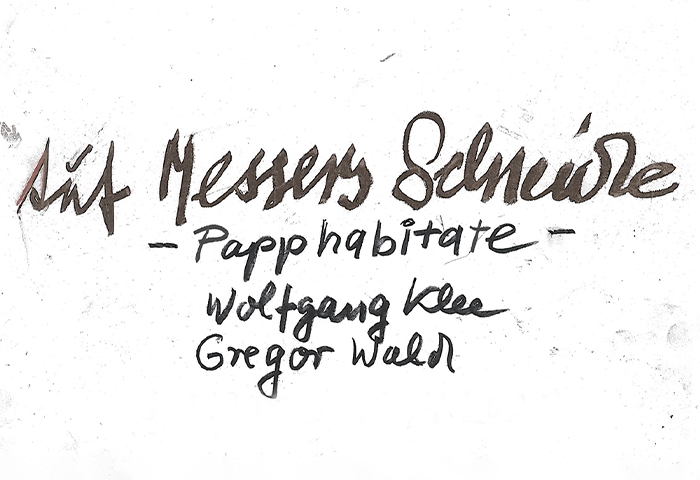 Auf Messers Schneide
- Papphabitate -
Wolfgang Klee
Gregor Wald